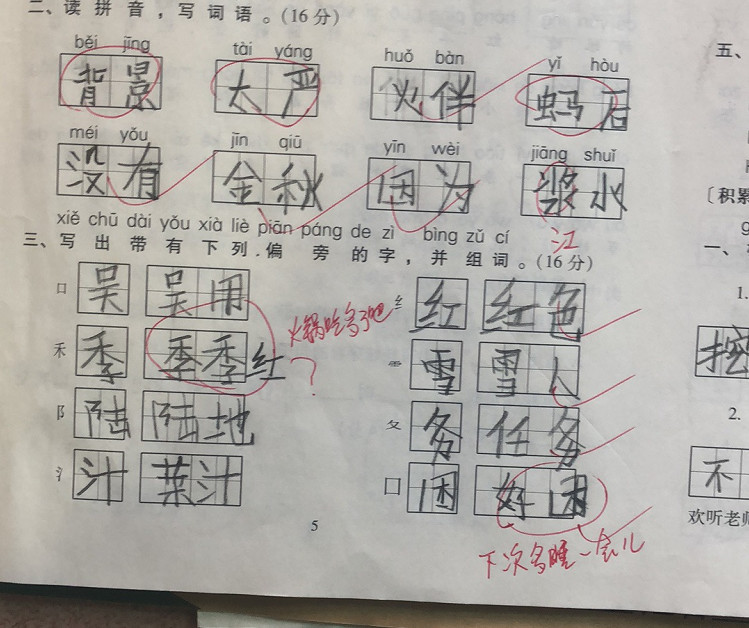 二、读拼音，写词语。(16分)
běi jǐng tài yáng huǒ bàn yǐ hòu
背景 太严 伙伴 蚂后
méi yǒu jīn qiū yīn wèi jiāng shuǐ
没有 金秋 因为 浆水
江
xiě chū dài yǒu xià liè piān páng de zì bìng zǔ cí
三、写出带有下列偏旁的字，并组词。(16分)
口 吴 吴用 纟 红 红色
火锅吃多了吧
禾 季 季季红 ? 雪 雪人
阝 陆 陆地 夂 务 任务
氵 汁 菜汁 囗 困 好困
下次多睡一会儿
5
五、
〔积累
一、
1.
挖
2.
不
欢听老师